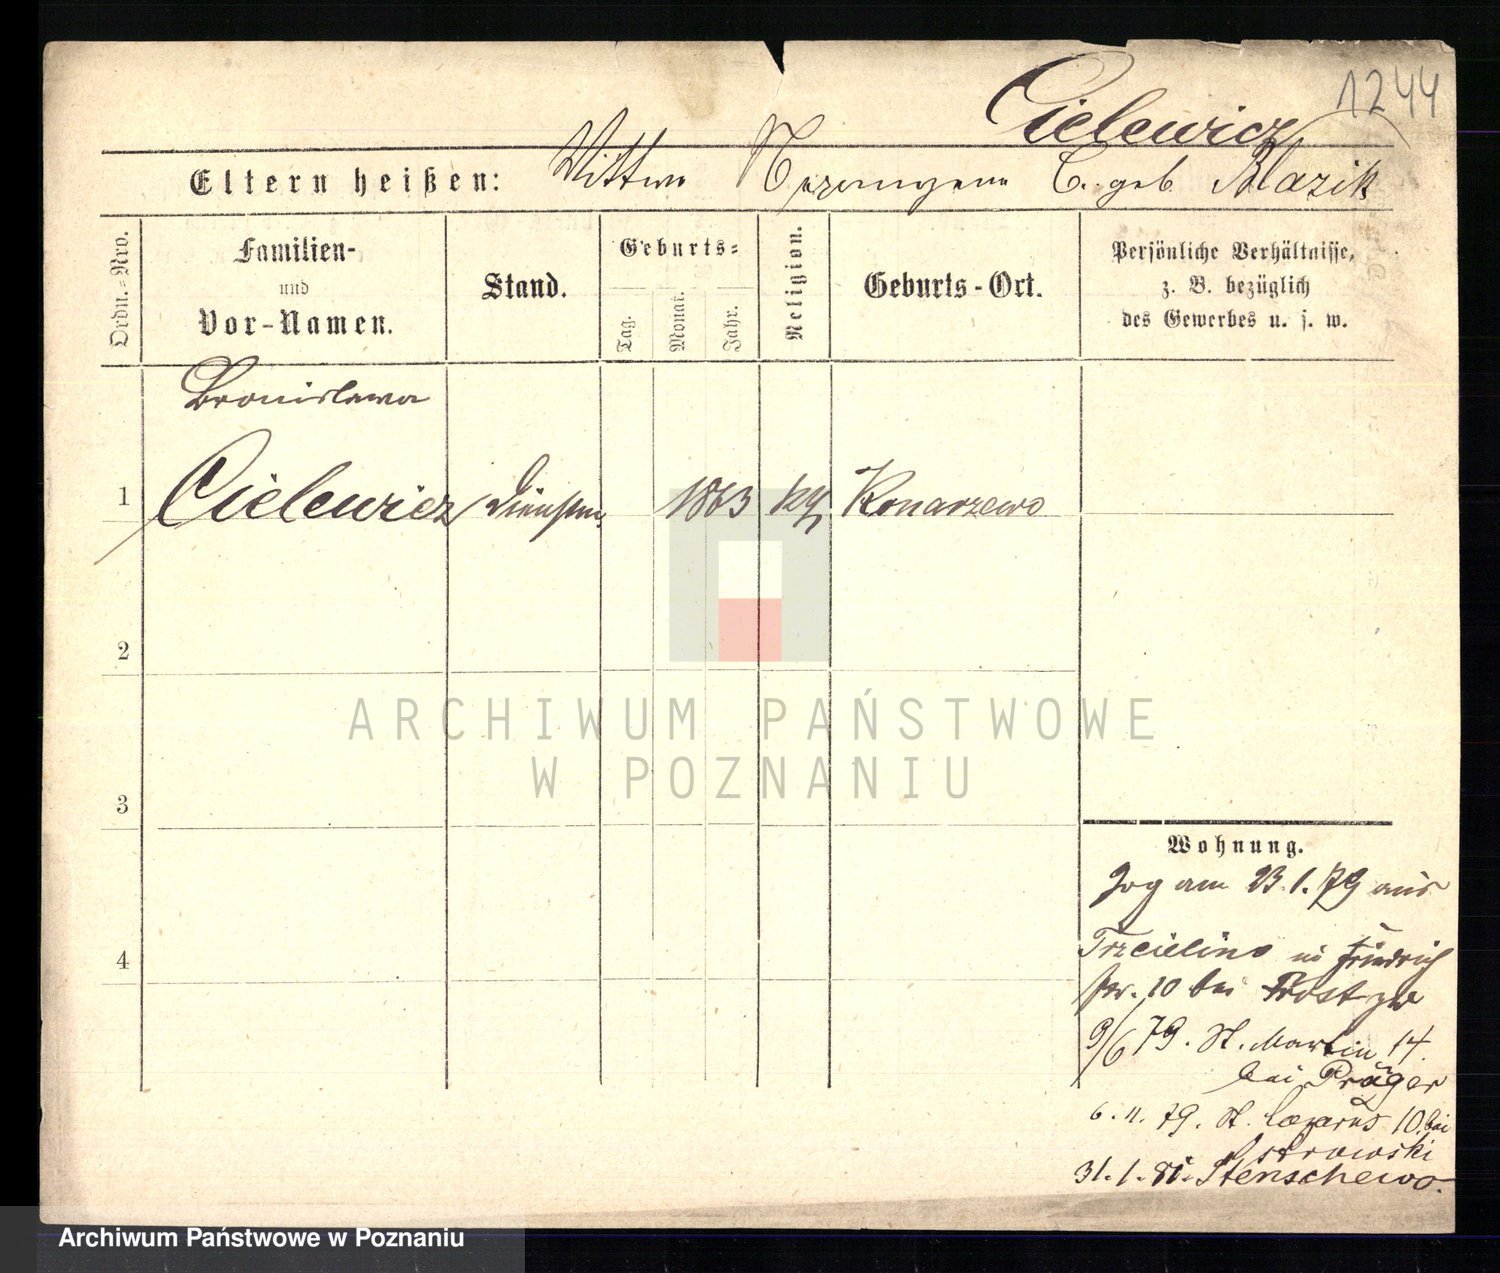 1244
Cielewicz
Eltern heißen: Wittwe C. geb. Blazik
Ordn.=Nro.
Familien-
und
Vor-Namen.
Stand.
Geburts=
Tag.
Monat.
Jahr.
Religion.
Geburts-Ort.
Persönliche Verhältnisse,
z. B. bezüglich
des Gewerbes u. s. w.
Bronislawa
1 Cielewicz Dienstm. 1863 kath. Konarzewo
2
3
4
ARCHIWUM PAŃSTWOWE
W POZNANIU
Wohnung.
Zog am 23.1.79 aus
Trzcielino in Friedrich
str. 10 bei Trost zu
9/6 79. St. Martin 14.
bei Präger
6. 11. 79. St. Lazarus 10. bei
Ostrowski
31.1.81. Stenschewo.
Archiwum Państwowe w Poznaniu